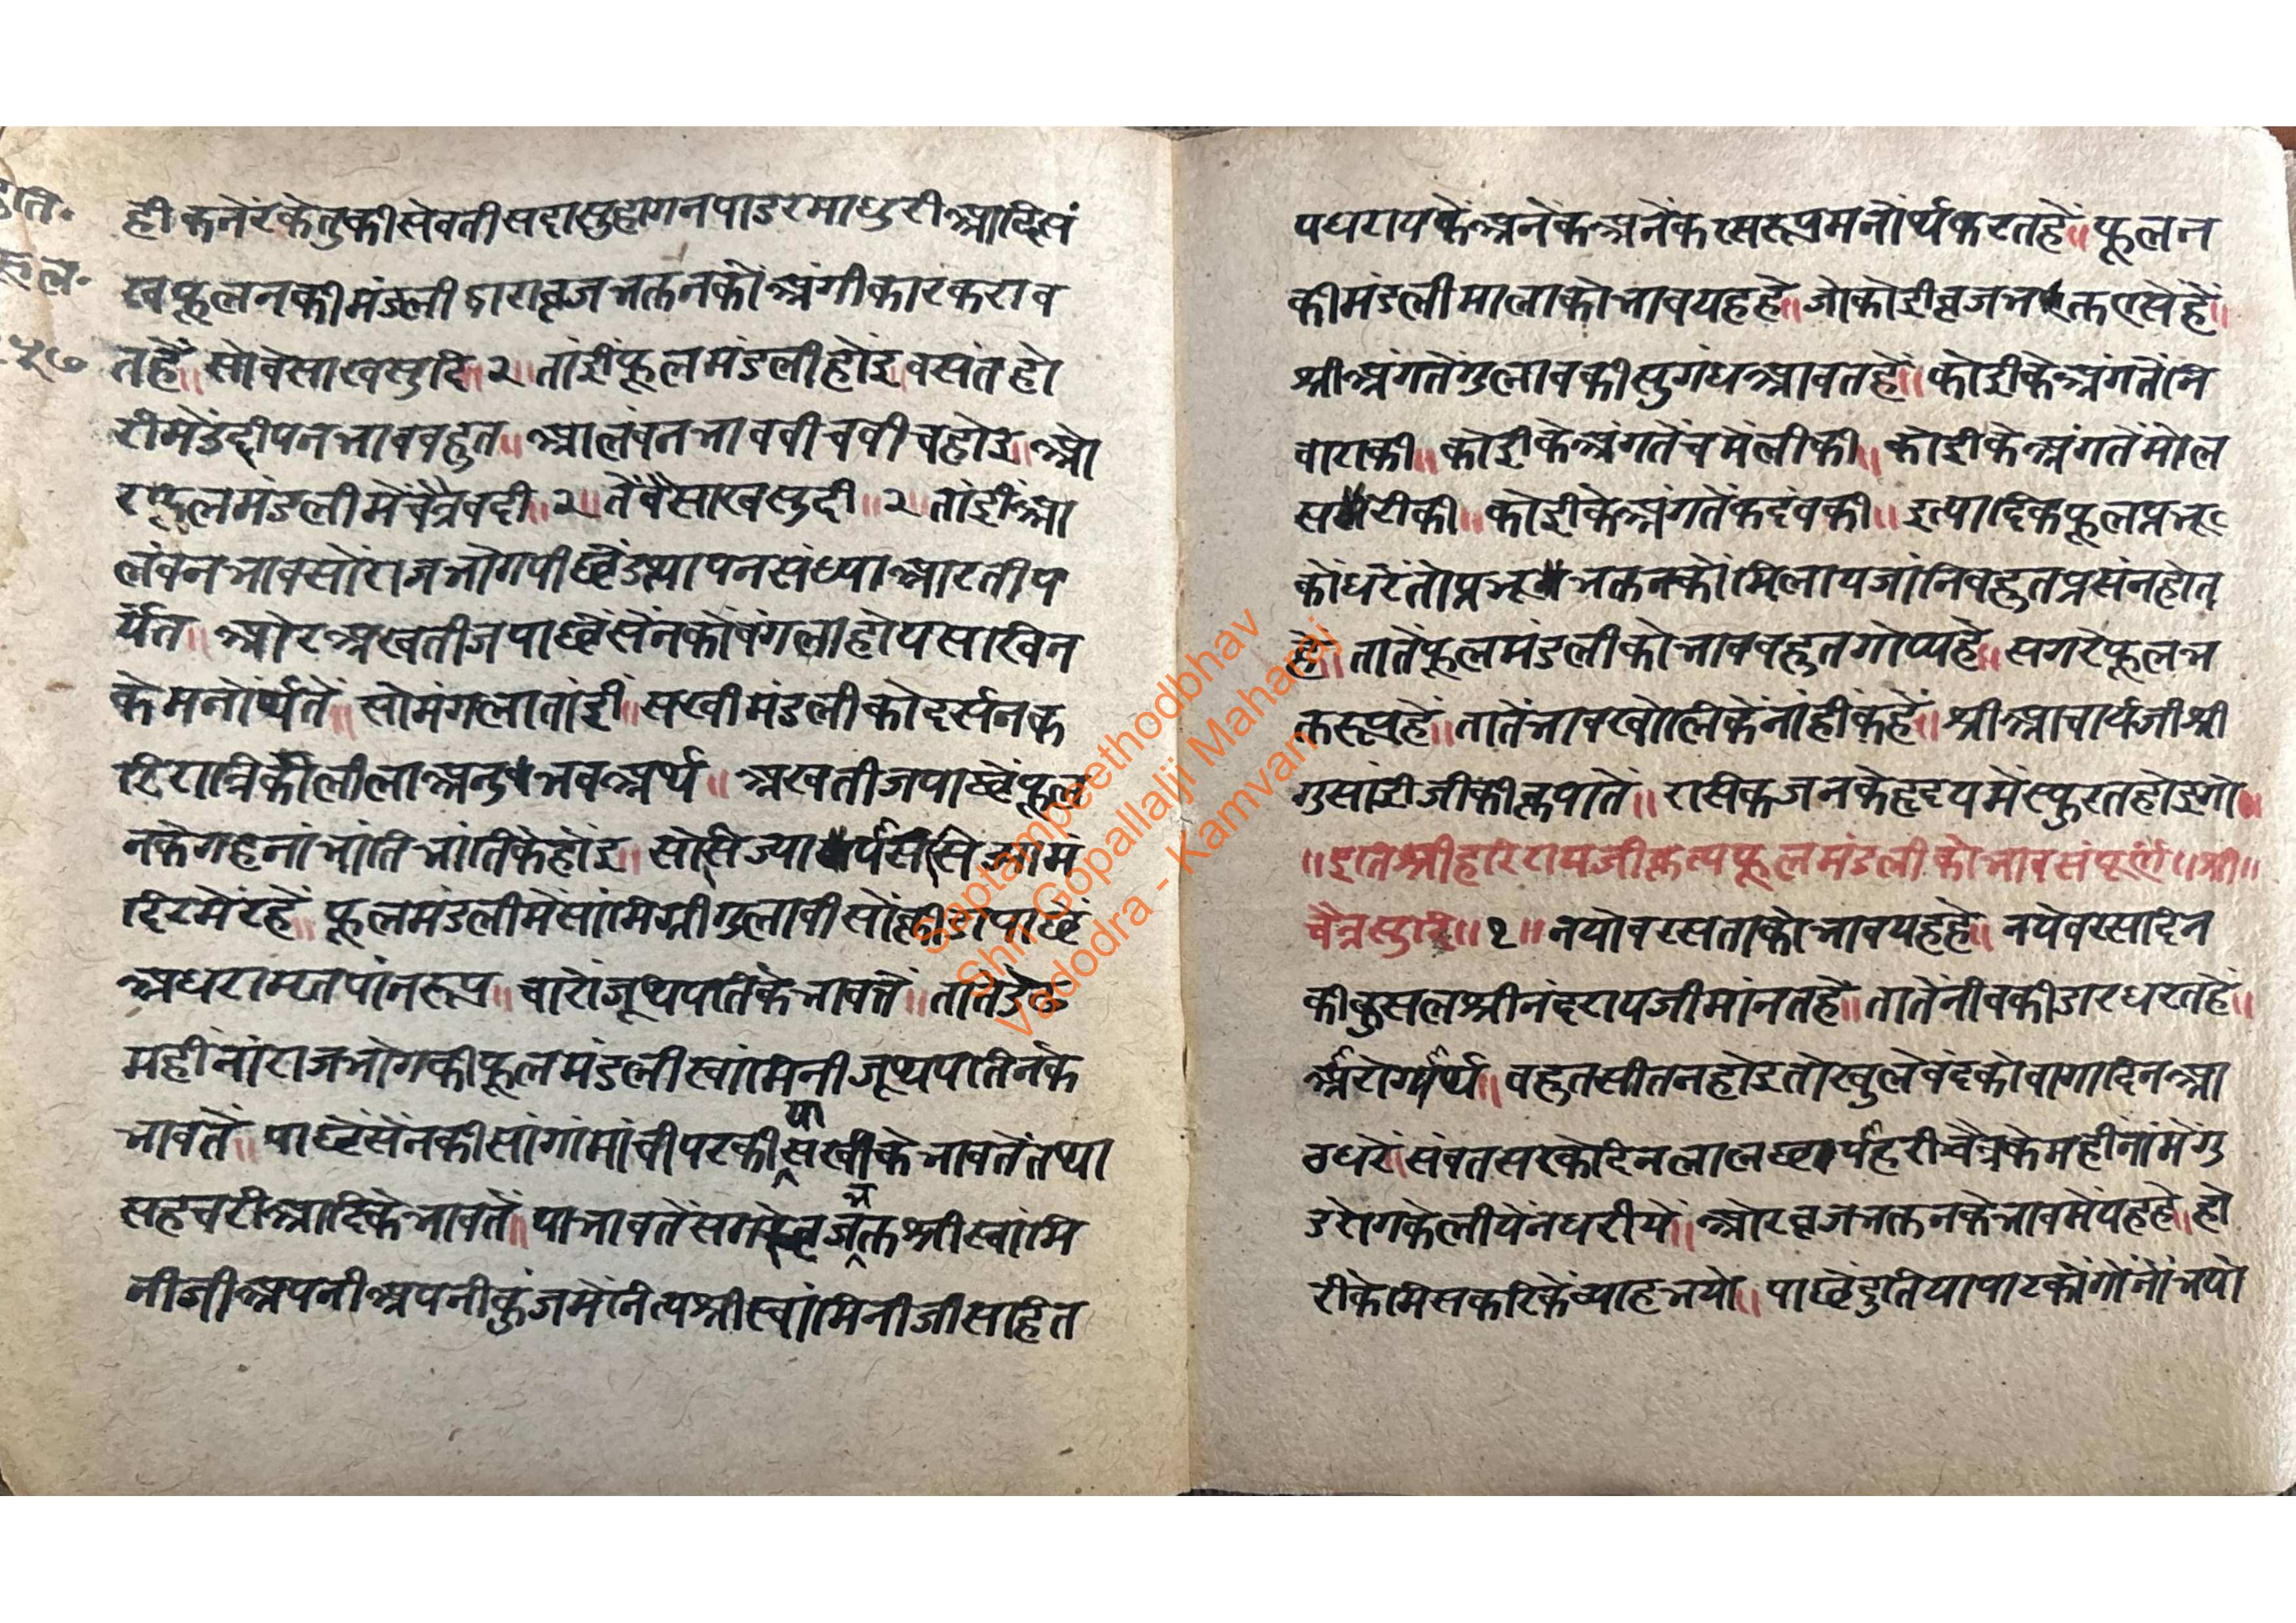 ही कनेर केतुकी सेवती सदासुहागन पाडर माधुरी आदि सं
रव फूलनकी मंडली द्वारा व्रजभक्तनकों अंगीकार करावा
त हें॥ सो वेसाख सुदि॥ २॥ तांई फूलमंडली होंइ॥ वसंत हो
रीमें उद्दीपन भाव बहुत॥ आलंबन भाव बीच बीच होइ॥ ओ
र फूलमंडलीमें चैत्र वदी॥ २॥ तें वैसाख सुदी॥ २॥ तांईं आ
लंबन भावसों राजभोग पीछें उत्थापन संध्या आरती प
र्यंत॥ ओर अखतीज पाछें सेंनकों बंगला होय सखिन
के मनोर्थ तें॥ सो मंगला तांईं॥ सखी मंडलीको दर्सन क
रि रात्रिकी लीला अनुभव अर्थ॥ अखतीज पाछें फूल
नके गहनां भांति भांतिके होंइ॥
दिरमें रहें॥ फूलमंडलीमें सांमिग्री गुलाबी
अधरामृत पांन रूप॥ चारों जूथपतिके भावतें॥ तातें
महींनां राजभोगकी फूलमंडली स्वांमिनी जूथपतिनके
भावतें॥ पाछें सेंनकी सांगांमांची परकीया सखीके भावतें तथा
सहचरी आदिके भावतें॥ या भावतें सगरे व्रजभक्त श्री स्वांमि
नीजी अपनी अपनी कुंजमें नित्य श्री स्वांमिनीजी सहित
पधरायकें अनेक अनेक रसरूप मनोर्थ करत हें॥ फूलन
की मंडली मालाको भाव यह हे॥ जो कोई व्रजभक्त एसे हें॥
श्रीअंगतें गुलाबकी सुगंध आवत हें॥ कोईके अंगतें नि
वाराकी॥ कोईके अंगतें चमेलीकी॥ कोईके अंगतें मोल
सरीकी॥ कोईके अंगतें कदंबकी॥ इत्यादिक फूल प्रभू
कों धरें तो प्रभू भक्तनकों मिलाय जांनि बहुत प्रसंन होत
हे॥ तातें फूलमंडलीको भाव बहुत गोप्य हे॥ सगरे फूल भ
क्तरूप हें॥ तातें भाव खोलिकें नांहीं कहें॥ श्रीआचार्यजी श्री
गुसांईजीकी कृपातें॥ रसिकजनके हृदयमें स्फुरत होइगो॥
॥इति श्रीहरिरायजी कृत्य फूलमंडलीको भाव संपूर्ण॥ श्री॥
चैत्र सुदि॥ १॥ नयो वरस ताको भाव यह हे॥ नये वरसादिन
की कुसल श्रीनंदरायजी मांनत हें॥ तातें नीबकी डार धरत हें॥
बहुत सीत न होइ तो खुले बंदको वागा दिन आ
ठ धरें॥ संवतसरके दिन लाल छापै हरी॥ चैत्रके महीनांमें गु
ड रोगके लीयें न धरीयें॥ ओर व्रजभक्तनके भावमें यह हे॥ हो
रीके मिस करिकें व्याह भयो॥ पाछें दुतिया पाटकों गोंनों भयो